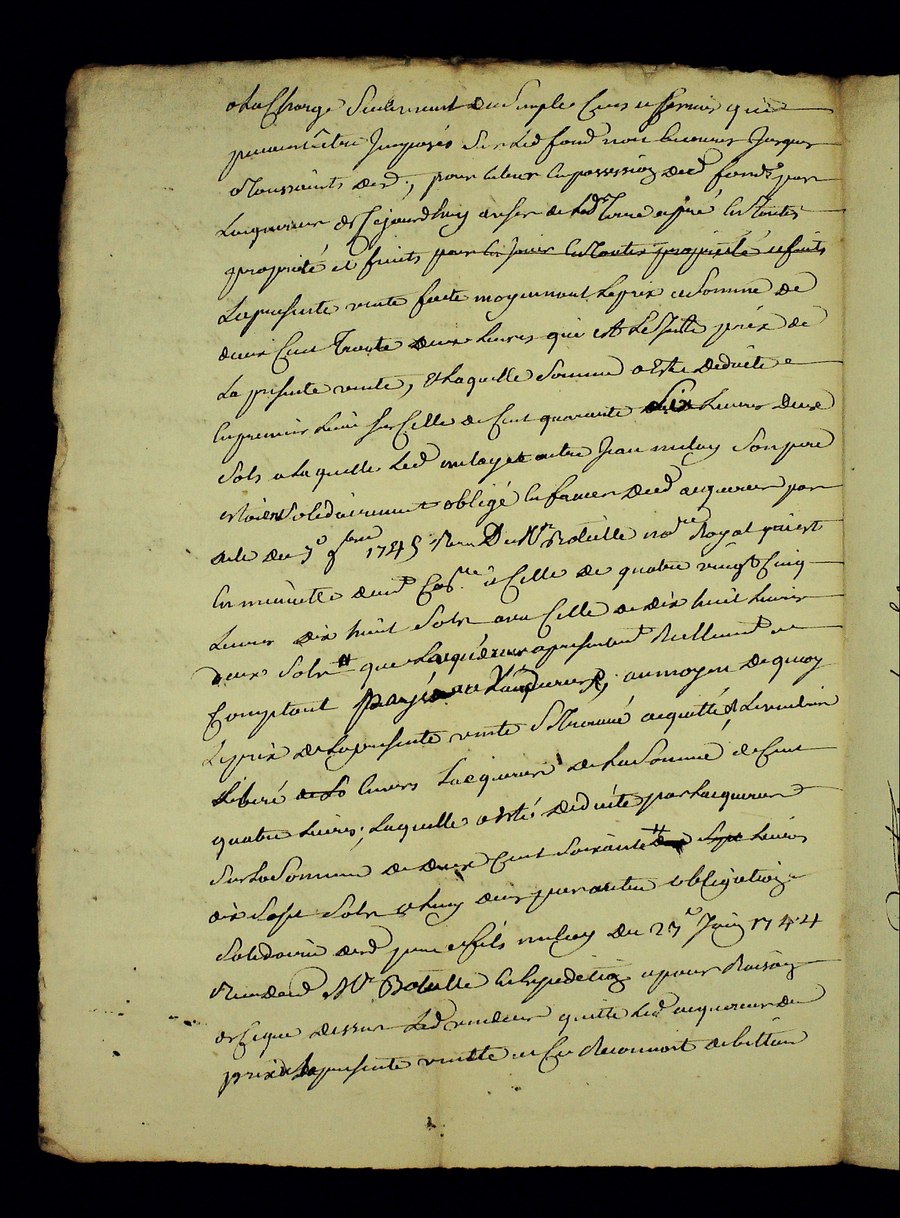 a la Charge seulement du simple Cens et servis qui
peuvent être Imposés sur led fond non encourus Jusques
a Toussaints der, pour entrer en possession dud fonds par
Lacquereur dez ce Jourdhuy en ser de led Terre a pré en toutte
propriété et fruits pour en Jouir en toutte propriété et fruits
La presente vente faite moyennant le prix et somme de
deux Cent Trente deux Livres qui est le Juste prix de
La presente vente, et laquelle somme a esté deduite
en premier Lieu sur Celle de Cent quarante six Livres deux
sols a laquelle led mulay et autre Jean mulay son pere
estoient solidairement obligé en faveur dud acquereur par
acte du 7e 9bre 1745 Reçu Me Botulle no.re Royal qui est
en minutte a Celle de quatre vingt Cinq
Livres dix huit sols avec Celle de dix huit Livres
deux sols que Lacquereur a presentement reellement et
Comptant payé au moyen de quoy
Le prix de la presente vente se trouve acquitté et le vendeur
Liberé envers Lacquereur de la somme de Cent
quatre Livres, Laquelle a esté deduite par Lacquereur
sur la somme de deux Cent soixante sept Livres
dix sept sols a luy due par autre obligation
solidaire desd pere et fils mulay du 23e Juin 1744
Reçu dud Me Botulle en expedition et pour Raison
de ce que dessus led vendeur quitte led acquereur du
prix de la presente vente et en Reconnoit debiteur